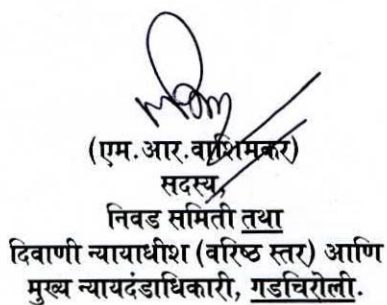 (एम.आर.वाशिमकर)
सदस्य,
निवड समिती तथा
दिवाणी न्यायाधीश (वरिष्ठ स्तर) आणि
मुख्य न्यायदंडाधिकारी, गडचिरोली.